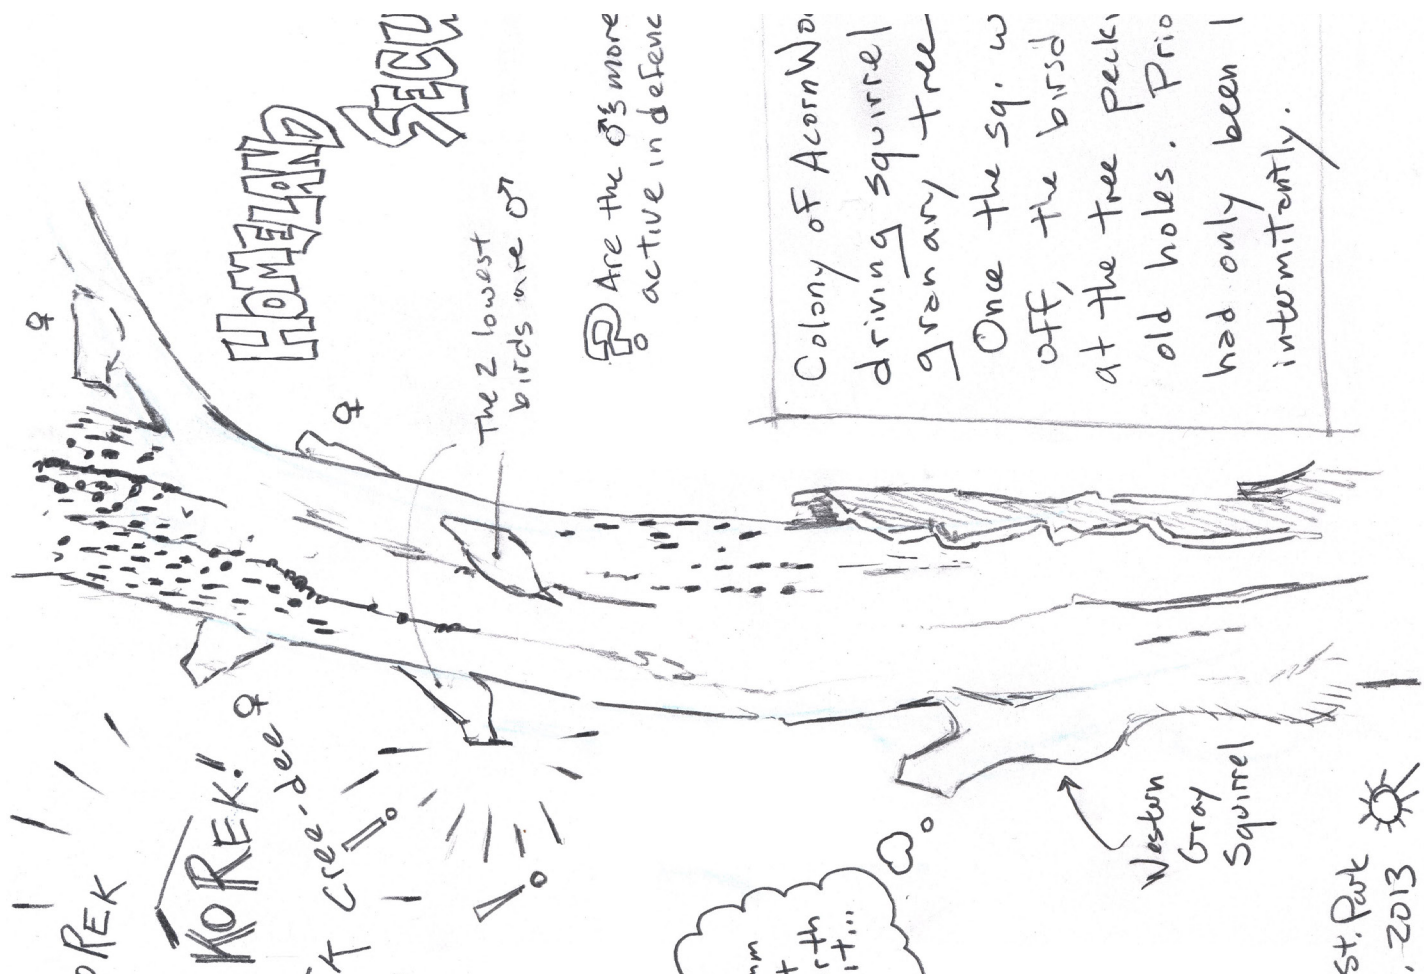 ♀
HOMELAND
SECU
♀
The 2 lowest
birds are ♂
? Are the ♂'s more
active in defenc
Colony of AcornWo
driving squirrel
granary tree
Once the sq. w
off, the birsd
at the tree pecki
old holes. Prio
had only been l
intermitantly.
OREK
KOREK!
Cree-dee ♀
!
!
Western
Gray
Squirrel
st. Park
, 2013